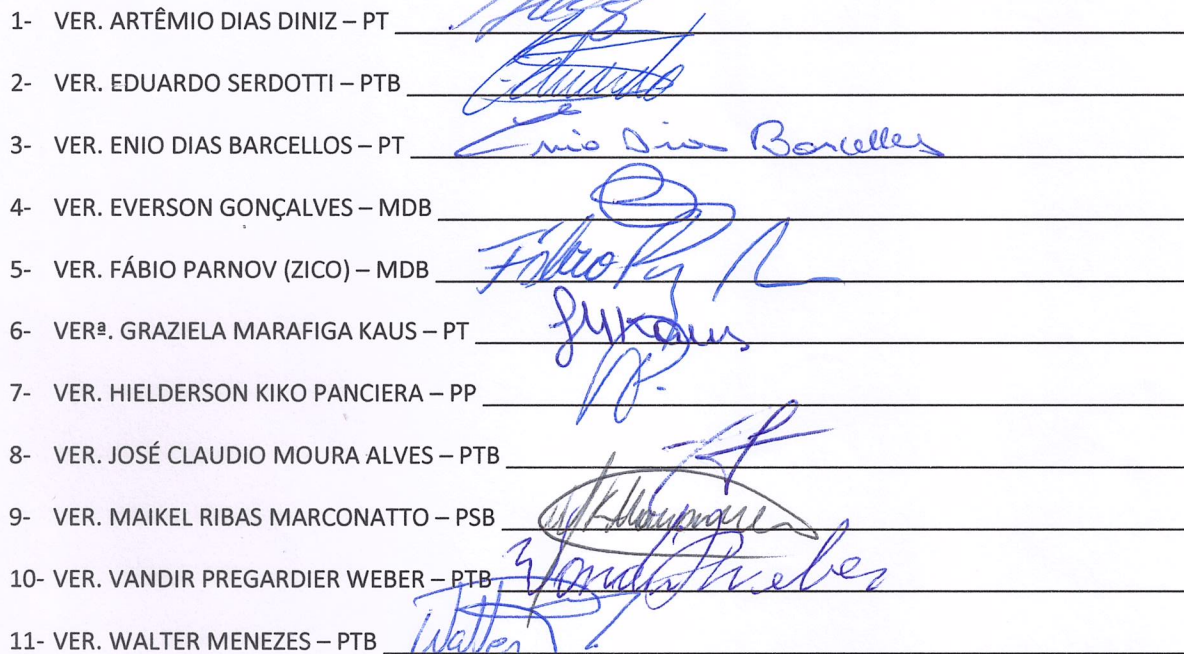 1- VER. ARTÊMIO DIAS DINIZ – PT
2- VER. EDUARDO SERDOTTI – PTB Eduardo
3- VER. ENIO DIAS BARCELLOS – PT Enio Dias Barcellos
4- VER. EVERSON GONÇALVES – MDB
5- VER. FÁBIO PARNOV (ZICO) – MDB Fábio
6- VERª. GRAZIELA MARAFIGA KAUS – PT GMKaus
7- VER. HIELDERSON KIKO PANCIERA – PP
8- VER. JOSÉ CLAUDIO MOURA ALVES – PTB
9- VER. MAIKEL RIBAS MARCONATTO – PSB
10- VER. VANDIR PREGARDIER WEBER – PTB Vandir Weber
11- VER. WALTER MENEZES – PTB Walter